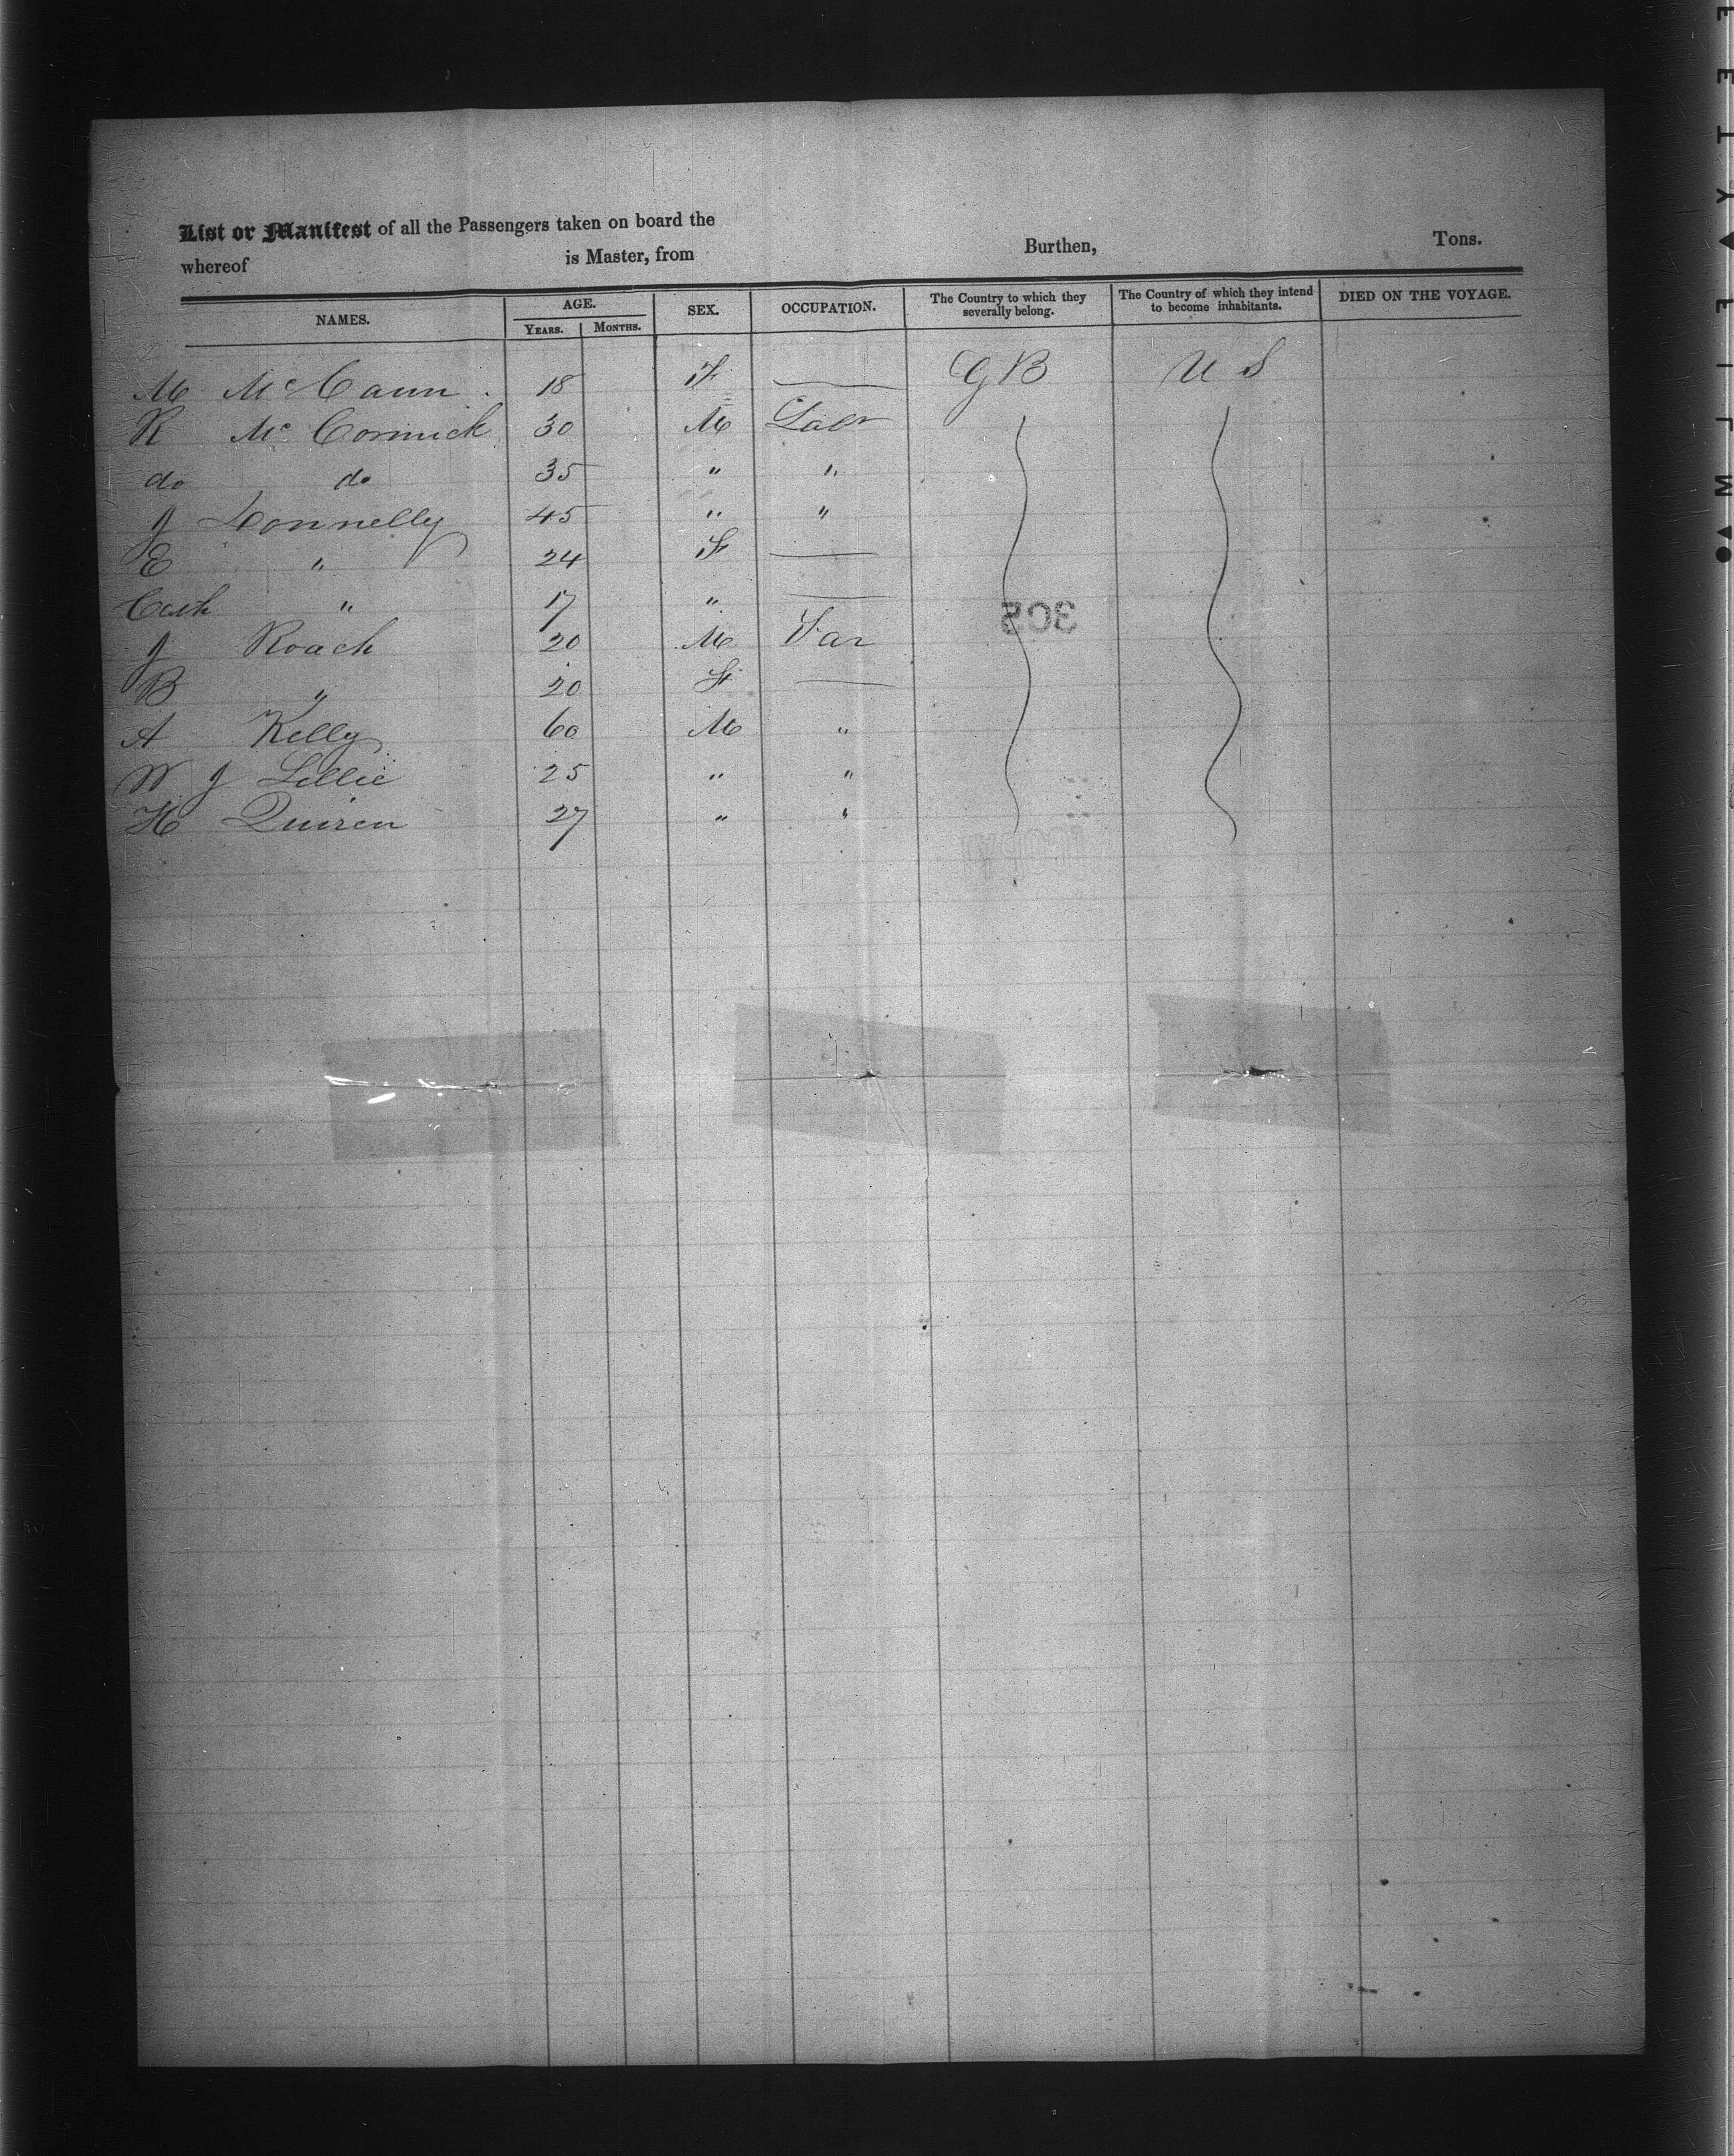 List or Manifest of all the Passengers taken on board the
whereof is Master, from Burthen, Tons.
NAMES. AGE. YEARS. MONTHS. SEX. OCCUPATION. The Country to which they severally belong. The Country of which they intend to become inhabitants. DIED ON THE VOYAGE.
M McCann 18 F — G B U S
R McCormick 30 M Labr
do do 35 " "
J Connelly 45 " "
E " 24 F —
Cath " 17 " —
J Roach 20 M Far
B " 20 F —
A Kelly 60 M "
W J Lillie 25 " "
H Quiren 27 " "
302